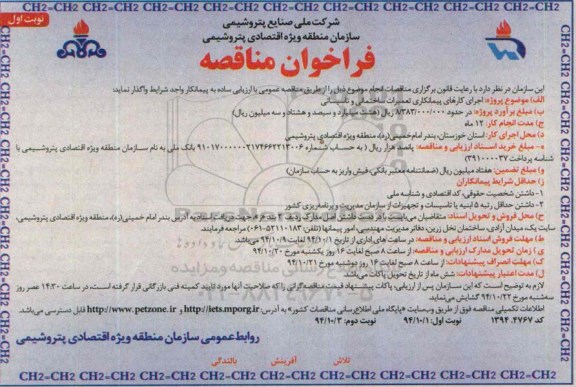 CH2=CH2 CH2=CH2 CH2=CH2 CH2=CH2 CH2=CH2 CH2=CH2 CH2=CH2
نوبت اول
شرکت ملی صنایع پتروشیمی
سازمان منطقه ویژه اقتصادی پتروشیمی
فراخوان مناقصه
این سازمان در نظر دارد با رعایت قانون برگزاری مناقصات انجام موضوع ذیل را از طریق مناقصه عمومی با ارزیابی ساده به پیمانکار واجد شرایط واگذار نماید:
الف) موضوع پروژه: اجرای کارهای پیمانکاری تعمیرات ساختمانی و تاسیساتی
ب) مبلغ برآورد پروژه: در حدود ۸/۳۸۳/۰۰۰/۰۰۰ ریال (هشت میلیارد و سیصد و هشتاد و سه میلیون ریال)
ج) مدت انجام کار: ۱۲ ماه
د) محل اجرای کار: استان خوزستان، بندر امام خمینی (ره)، منطقه ویژه اقتصادی پتروشیمی
ه) مبلغ خرید اسناد ارزیابی و مناقصه: پانصد هزار ریال ( به حساب شماره ۹۱۰۱۷۰۰۰۰۰۰۲۱۷۴۶۶۲۲۱۳۰۰۶ بانک ملی به نام سازمان منطقه ویژه اقتصادی پتروشیمی با
شناسه پرداخت ۳۹۱۰۰۰۰۳۷)
و) مبلغ تضمین: هفتاد میلیون ریال (ضمانتنامه معتبر بانکی، فیش واریز به حساب سازمان)
ز) حداقل شرایط پیمانکاران
۱- داشتن شخصیت حقوقی، کد اقتصادی و شناسه ملی
۲- داشتن حداقل رتبه ۵ ابنیه یا تاسیسات و تجهیزات از سازمان مدیریت و برنامه‌ریزی کشور
ح) محل فروش و تحویل اسناد: متقاضیان می‌بایست با در دست داشتن اصل مدارک بند ه و ز جهت دریافت اسناد به آدرس بندر امام خمینی (ره) منطقه ویژه اقتصادی پتروشیمی،
سایت یک، میدان آزادی، ساختمان نخل زرین، دفتر مدیریت مهندسی، امور پیمانها (تلفن: ۵۲۱۱۰۱۸۳-۰۶۱) مراجعه فرمایند.
ط) مهلت فروش اسناد ارزیابی و مناقصه: در ساعت های اداری از تاریخ ۹۴/۱۰/۱ لغایت ۹۴/۱۰/۹ می باشد
ی) زمان تحویل مدارک ارزیابی و مناقصه: از ساعت ۸ صبح لغایت ۱۶ روز یکشنبه مورخ ۹۴/۱۰/۲۰
ک) مهلت انصراف پیشنهادات: از ساعت ۸ صبح لغایت ۱۶ روز دوشنبه مورخ ۹۴/۱۰/۲۱
ل) مدت اعتبار پیشنهادات: شش ماه از تاریخ تحویل پاکات می‌باشد.
لازم به توضیح است که این سازمان پس از ارزیابی، پاکات پیشنهاد قیمت مناقصه‌گرانی را که صلاحیت آنها مورد تایید کمیته فنی بازرگانی قرار گرفته است، در ساعت ۱۴:۳۰ عصر روز
سه‌شنبه مورخ ۹۴/۱۰/۲۲ گشایش می‌نماید.
اطلاعات تکمیلی مناقصه فوق از طریق وب‌سایت «پایگاه ملی اطلاع‌رسانی مناقصات کشور» به آدرس http://iets.mporg.ir و http://www.petzone.ir قابل دسترسی می‌باشد.
کد ۱۳۹۴.۴۷۶۷ نوبت اول: ۹۴/۱۰/۱ نوبت دوم: ۹۴/۱۰/۳
روابط عمومی سازمان منطقه ویژه اقتصادی پتروشیمی
تلاش آفرینش بالندگی
CH2=CH2 CH2=CH2 CH2=CH2 CH2=CH2 CH2=CH2 CH2=CH2 CH2=CH2